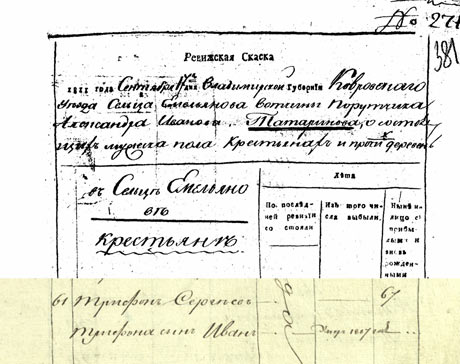 No 271
381
Ревижская Скаска
1811 года Сентября 17 дня Владимирской губернии Ковровскаго
уѣзда Сельца Емельянова вотчины Порутчика
Александра Иванова Татаринова, о состоя
щихъ мужеска пола крестьянахъ и
въ Сельцѣ Емельяно
вѣ
крестьянъ
Лѣта
По последней ревизіи состояли
Изъ того числа выбыли
Нынѣ на лицо съ прибылыми и вновь рожденными
61 Трифонъ Сергѣевъ 67
Трифона сынъ Иванъ